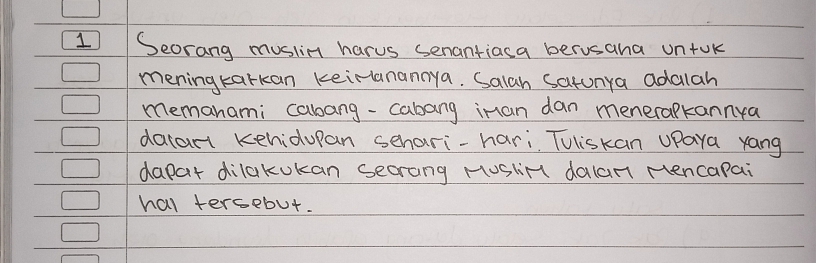 1 Seorang muslim harus senantiasa berusaha untuk
meningkatkan keimanannya. Salah satunya adalah
memahami cabang - cabang iman dan menerapkannya
dalam kehidupan sehari - hari. Tuliskan upaya yang
dapat dilakukan seorang muslim dalam mencapai
hal tersebut.